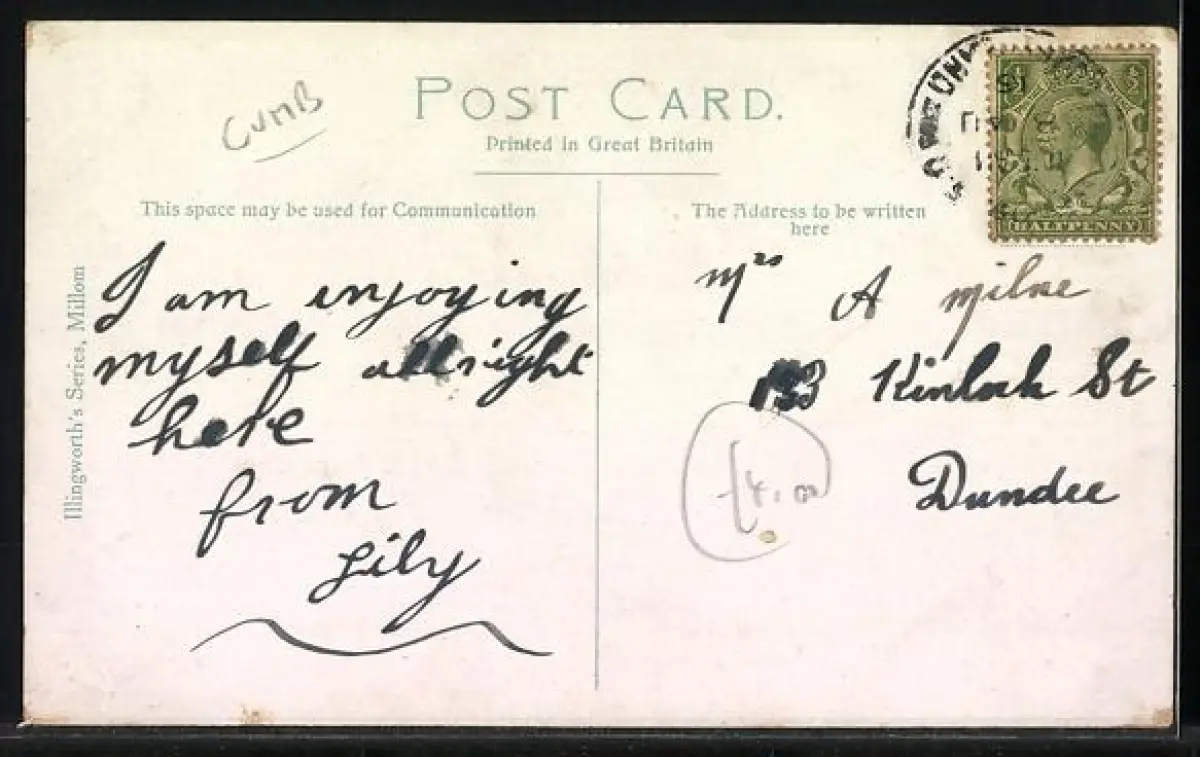 CUMB
POST CARD.
Printed in Great Britain
This space may be used for Communication
The Address to be written
here
Illingworth's Series, Millom
HALFPENNY
I am enjoying
myself allright
here
from
Lily
Mrs A Milne
Kinloch St
Dundee